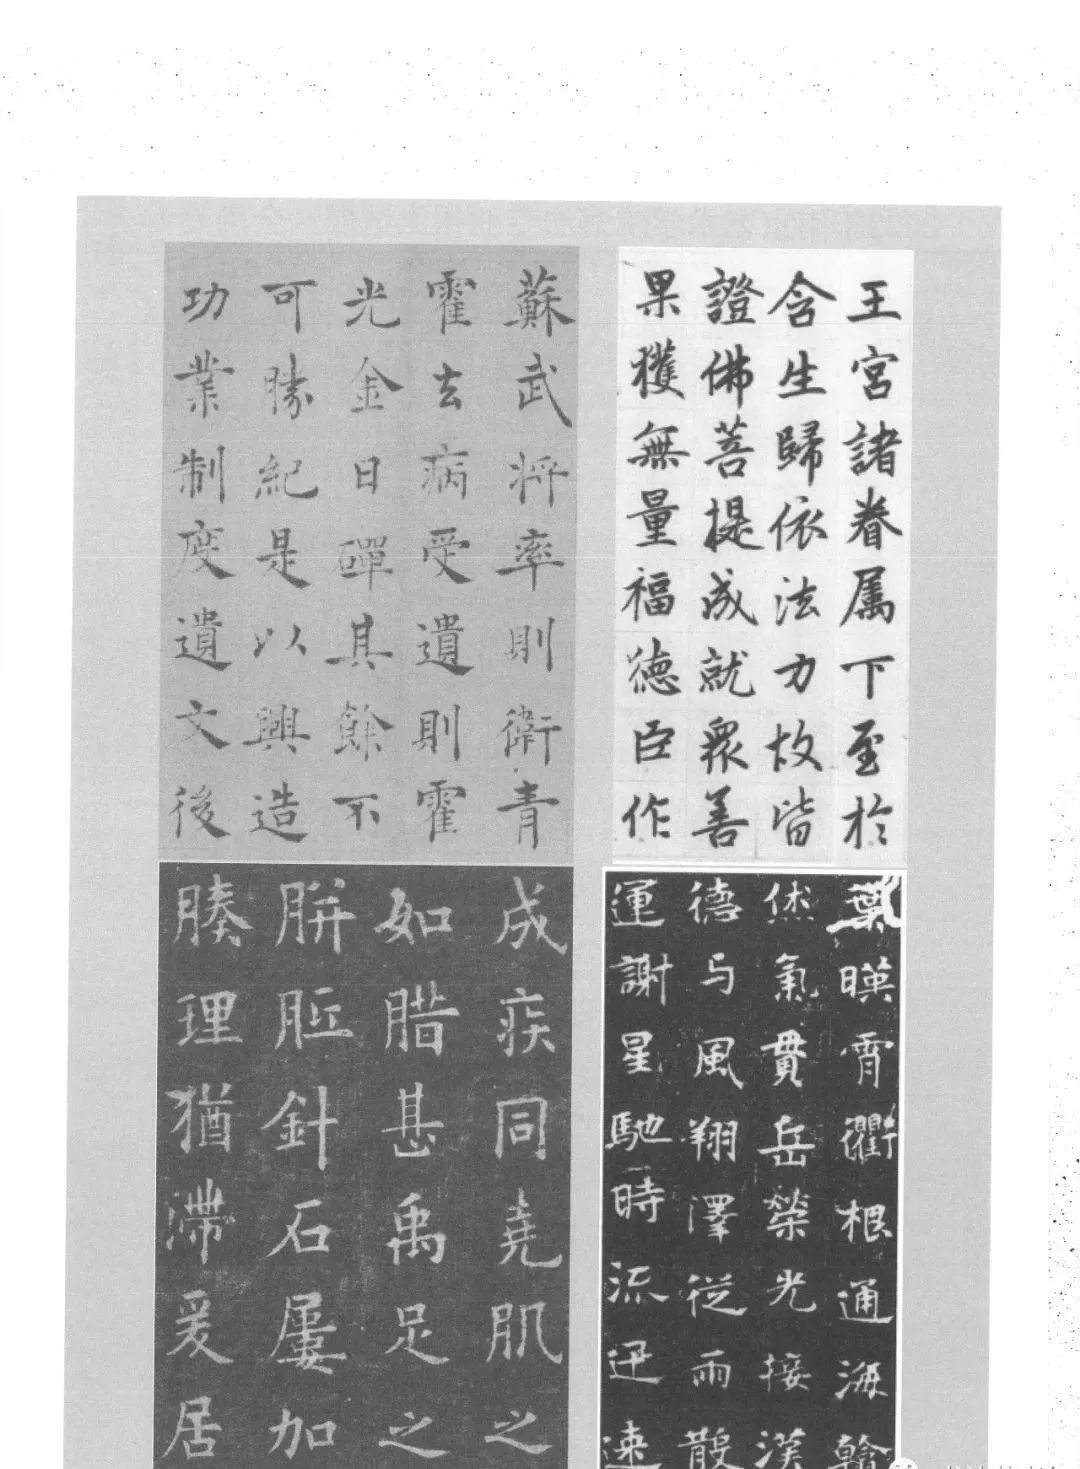 王宮諸眷属下至於
含生歸依法力故皆
證佛菩提成就眾善
果獲無量福德臣作
蘇武将率則衛青
霍去病受遺則霍
光金日磾其餘不
可勝紀是以興造
功業制度遺文後
葉暎霄衢根通海
烋氣貫岳榮光接漢
德与風翔澤従雨散
運謝星馳時流迅速
成疾同堯肌之
如腊甚禹足之
胼胝針石屢加
腠理猶滯爰居